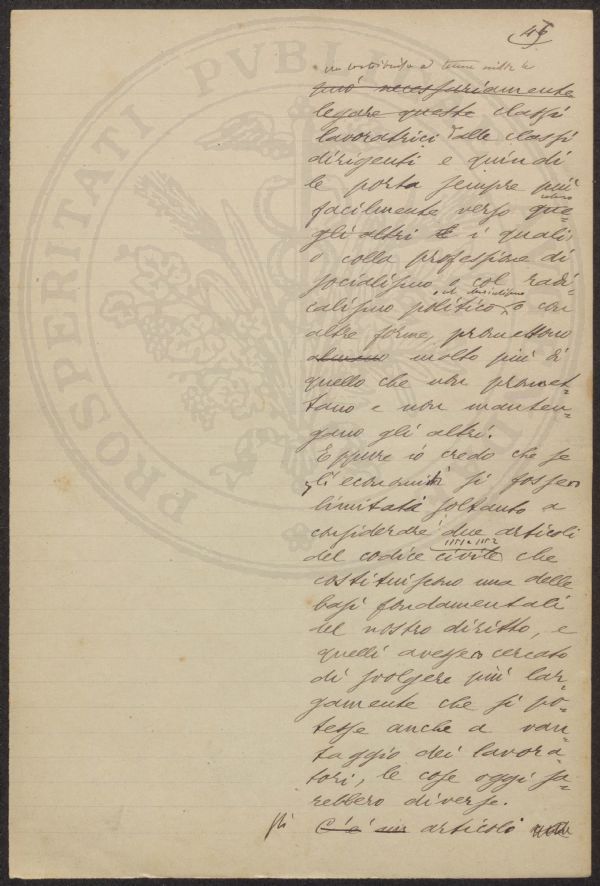 45
può necessariamente
legare queste classi
lavoratrici dalle classi
dirigenti e quindi
le porta sempre più
facilmente verso que-
gli altri i quali,
o colla professione di
socialismo o col radi-
calismo politico, o con
altre forme, promettono
almeno molto più di
quello che non promet-
tano e non manten-
gano gli altri.
Eppure io credo che se
gli economisti si fossero
limitati soltanto a
considerare due articoli
1151 e 1152
del codice civile che
costituiscono una delle
basi fondamentali
del nostro diritto, e
quelli avessero cercato
di svolgere più lar-
gamente che si po-
tesse anche a van-
taggio dei lavora-
tori, le cose oggi sa-
rebbero diverse.
Gli C'è un articoli
PROSPERITATI PVBLIC